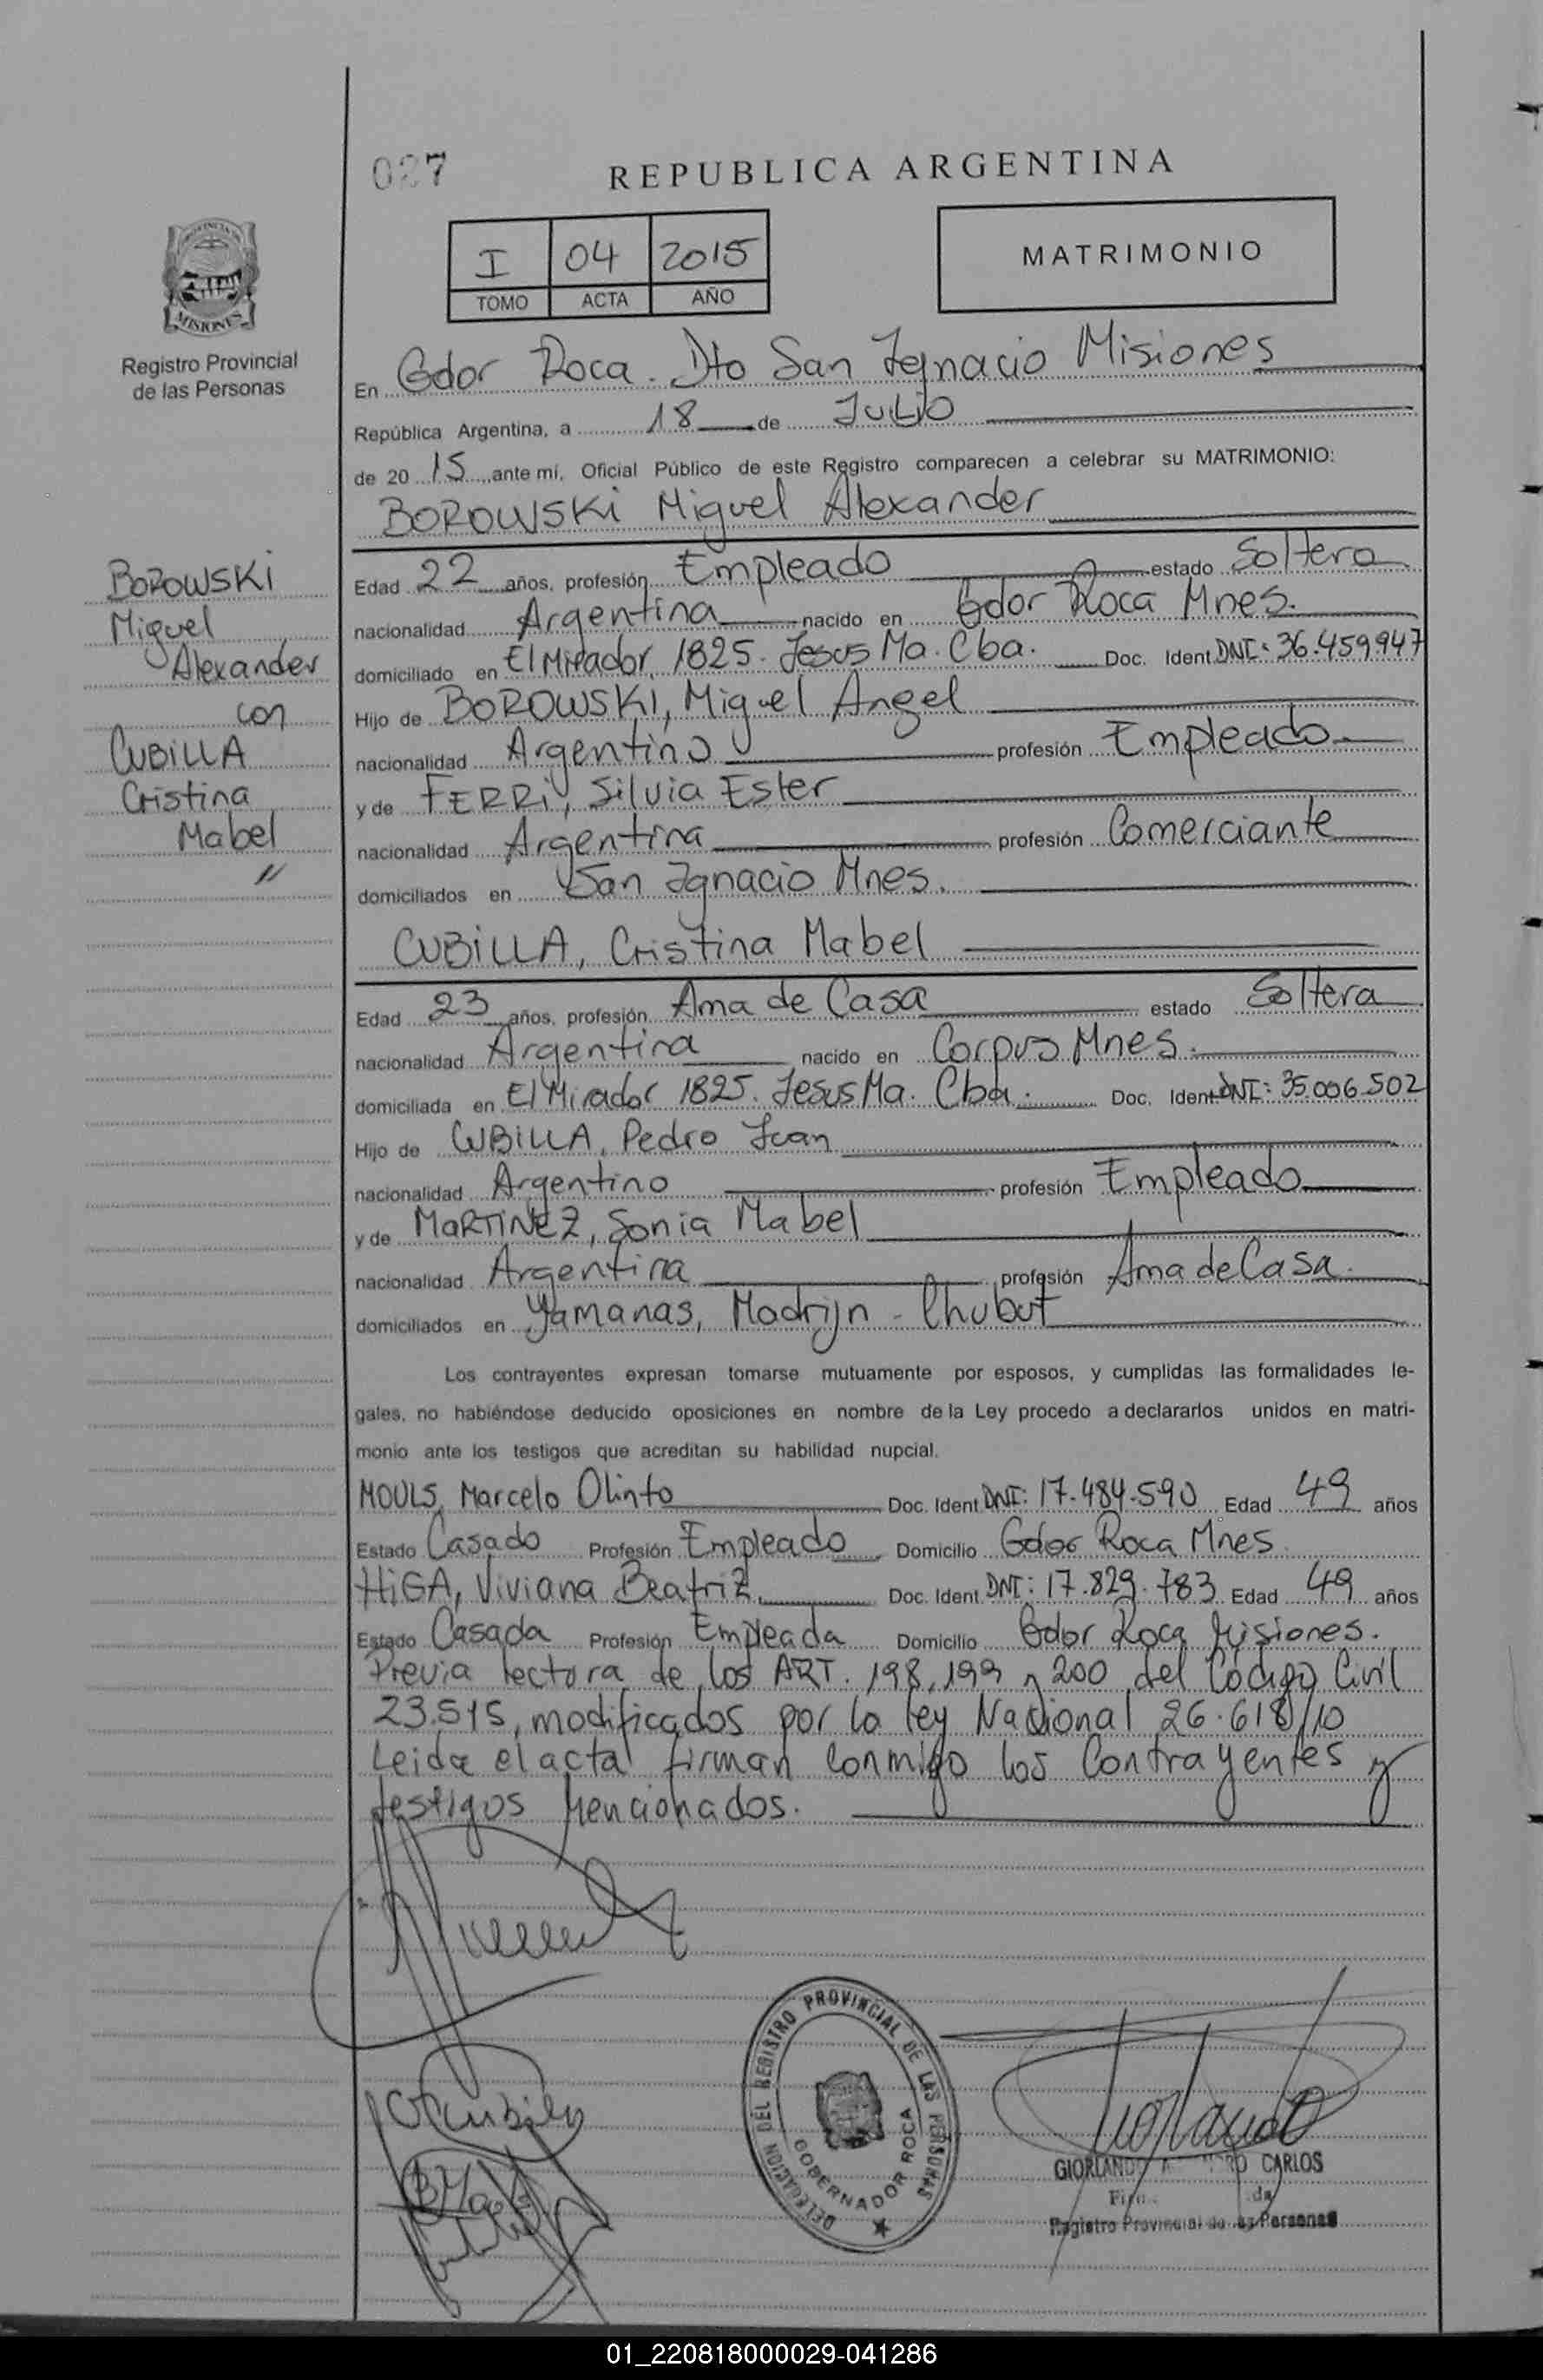 027
REPUBLICA ARGENTINA
I 04 2015
TOMO ACTA AÑO
MATRIMONIO
MISIONES
Registro Provincial
de las Personas
En Gdor Roca. Dto San Ignacio Misiones
República Argentina, a 18 de Julio
de 20 15 ante mí, Oficial Público de este Registro comparecen a celebrar su MATRIMONIO:
BOROWSKi Miguel Alexander
BOROWSKI
Miguel
Alexander
con
CUBILLA
Cristina
Mabel
"
Edad 22 años, profesión Empleado estado Soltero
nacionalidad Argentina nacido en Gdor Roca Mnes.
domiciliado en El Mirador 1825. Jesus Ma. Cba. Doc. Ident DNI: 36.459.947
Hijo de BOROWSKI, Miguel Angel
nacionalidad Argentino profesión Empleado
y de FERRi, Silvia Ester
nacionalidad Argentina profesión Comerciante
domiciliados en San Ignacio Mnes.
CUBiLLA, Cristina Mabel
Edad 23 años, profesión Ama de Casa estado Soltera
nacionalidad Argentina nacido en Corpus Mnes.
domiciliada en El Mirador 1825. Jesus Ma. Cba. Doc. Ident DNI: 35.006.502
Hijo de CUBiLLA, Pedro Juan
nacionalidad Argentino profesión Empleado
y de MaRTiNEZ, Sonia Mabel
nacionalidad Argentina profesión Ama de Casa.
domiciliados en Yamanas, Madrijn - Chubut
Los contrayentes expresan tomarse mutuamente por esposos, y cumplidas las formalidades le-
gales, no habiéndose deducido oposiciones en nombre de la Ley procedo a declararlos unidos en matri-
monio ante los testigos que acreditan su habilidad nupcial.
MOULS, Marcelo Olinto Doc. Ident DNI: 17.484.590 Edad 49 años
Estado Casado Profesión Empleado Domicilio Gdor Roca Mnes
HiGA, Viviana Beatriz Doc. Ident DNI: 17.829.783 Edad 49 años
Estado Casada Profesión Empleada Domicilio Gdor Roca Misiones.
Previa lectura de los ART. 198, 199 y 200 del Código Civil
23.515, modificados por la ley Nacional 26.618/10
Leida el acta firman conmigo los Contrayentes y
testigos Mencionados.
DELEGACION DEL REGISTRO PROVINCIAL DE LAS PERSONAS
GOBERNADOR ROCA
GIORLANDO CARLOS
Registro Provincial de las Personas
01_220818000029-041286